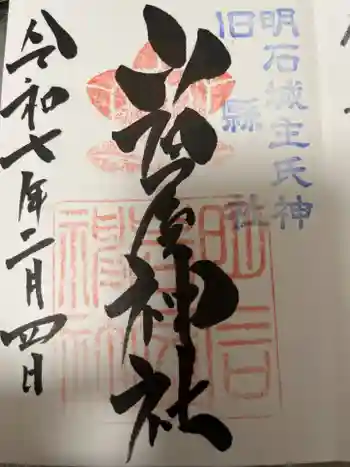 明石城主氏神
旧縣社
岩屋神社
令和七年二月四日